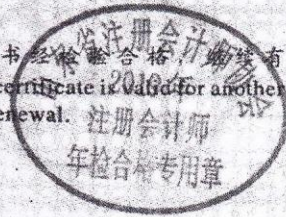 书经检验合格，继续有
certificate is valid for another
enewal.
省注册会计师协会
注册会计师
年检合格专用章